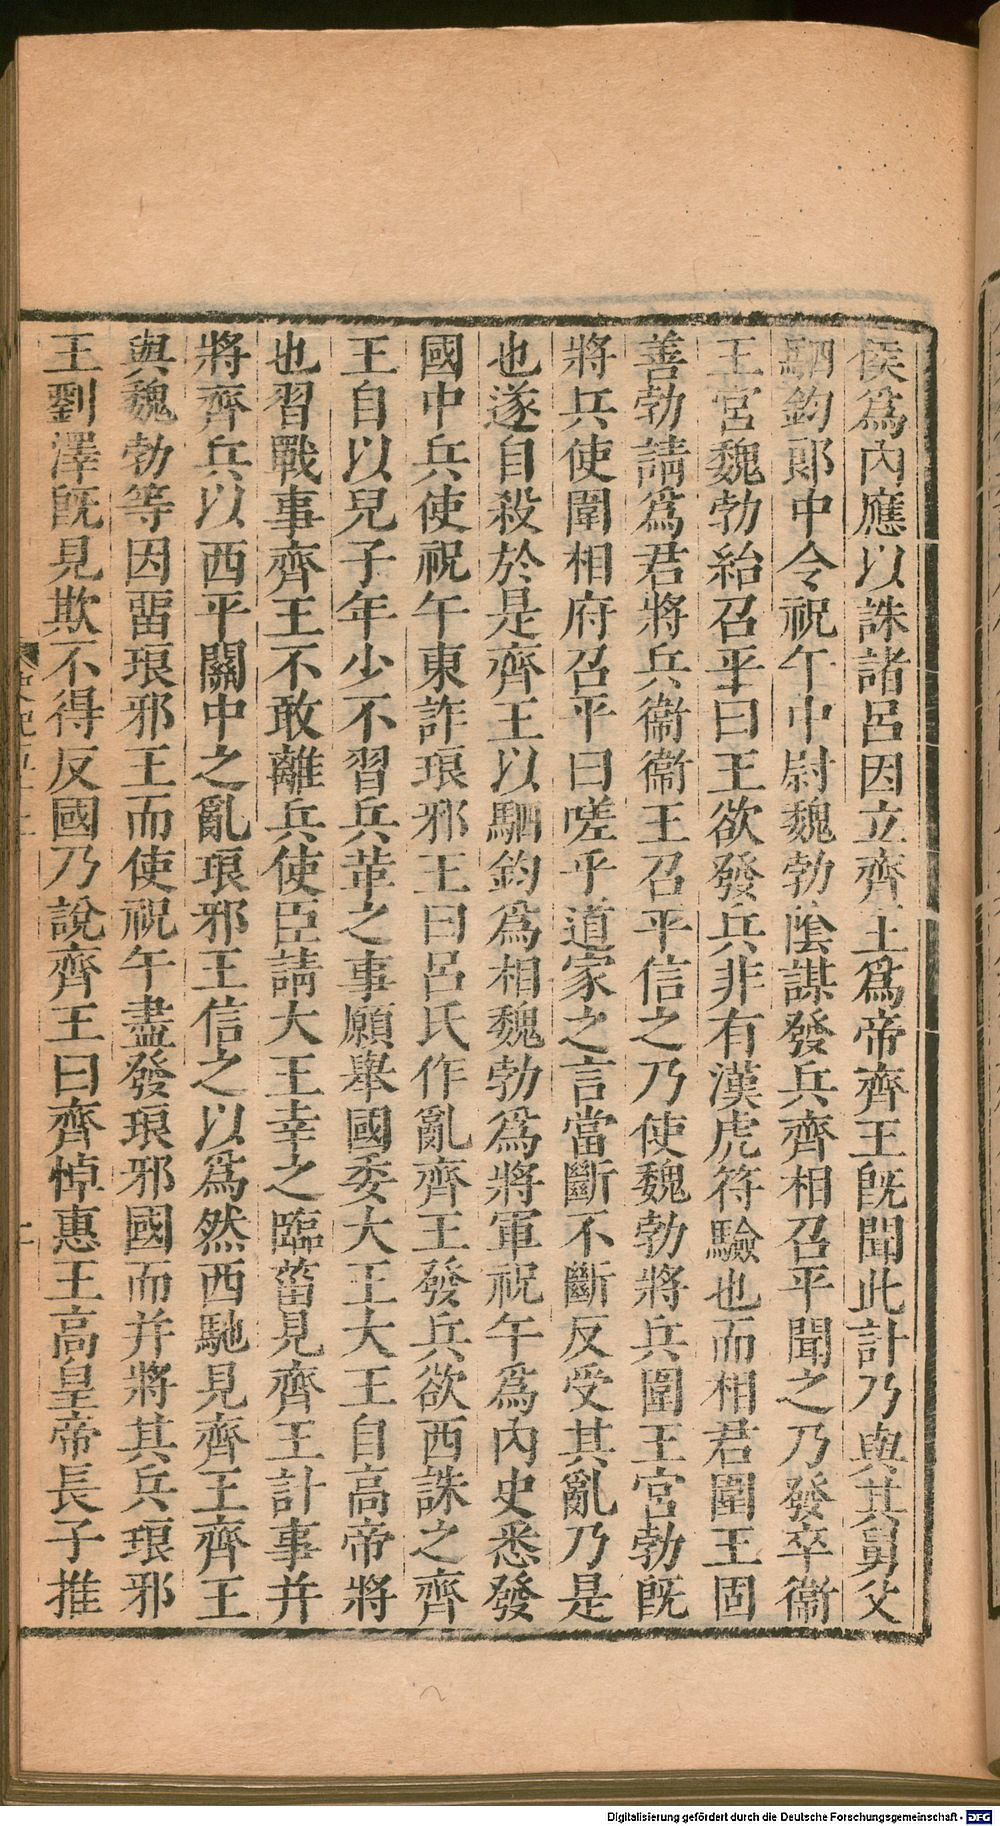 侯爲內應以誅諸呂因立齊王爲帝齊王旣聞此計乃與其舅父
駟鈞郎中令祝午中尉魏勃陰謀發兵齊相召平聞之乃發卒衞
王宮魏勃紿召平曰王欲發兵非有漢虎符驗也而相君圍王固
善勃請爲君將兵衞衞王召平信之乃使魏勃將兵圍王宮勃旣
將兵使圍相府召平曰嗟乎道家之言當斷不斷反受其亂乃是
也遂自殺於是齊王以駟鈞爲相魏勃爲將軍祝午爲內史悉發
國中兵使祝午東詐琅邪王曰呂氏作亂齊王發兵欲西誅之齊
王自以兒子年少不習兵革之事願舉國委大王大王自高帝將
也習戰事齊王不敢離兵使臣請大王幸之臨菑見齊王計事并
將齊兵以西平關中之亂琅邪王信之以爲然西馳見齊王齊王
與魏勃等因畱琅邪王而使祝午盡發琅邪國而并將其兵琅邪
王劉澤旣見欺不得反國乃說齊王曰齊悼惠王高皇帝長子推
Digitalisierung gefördert durch die Deutsche Forschungsgemeinschaft - DFG